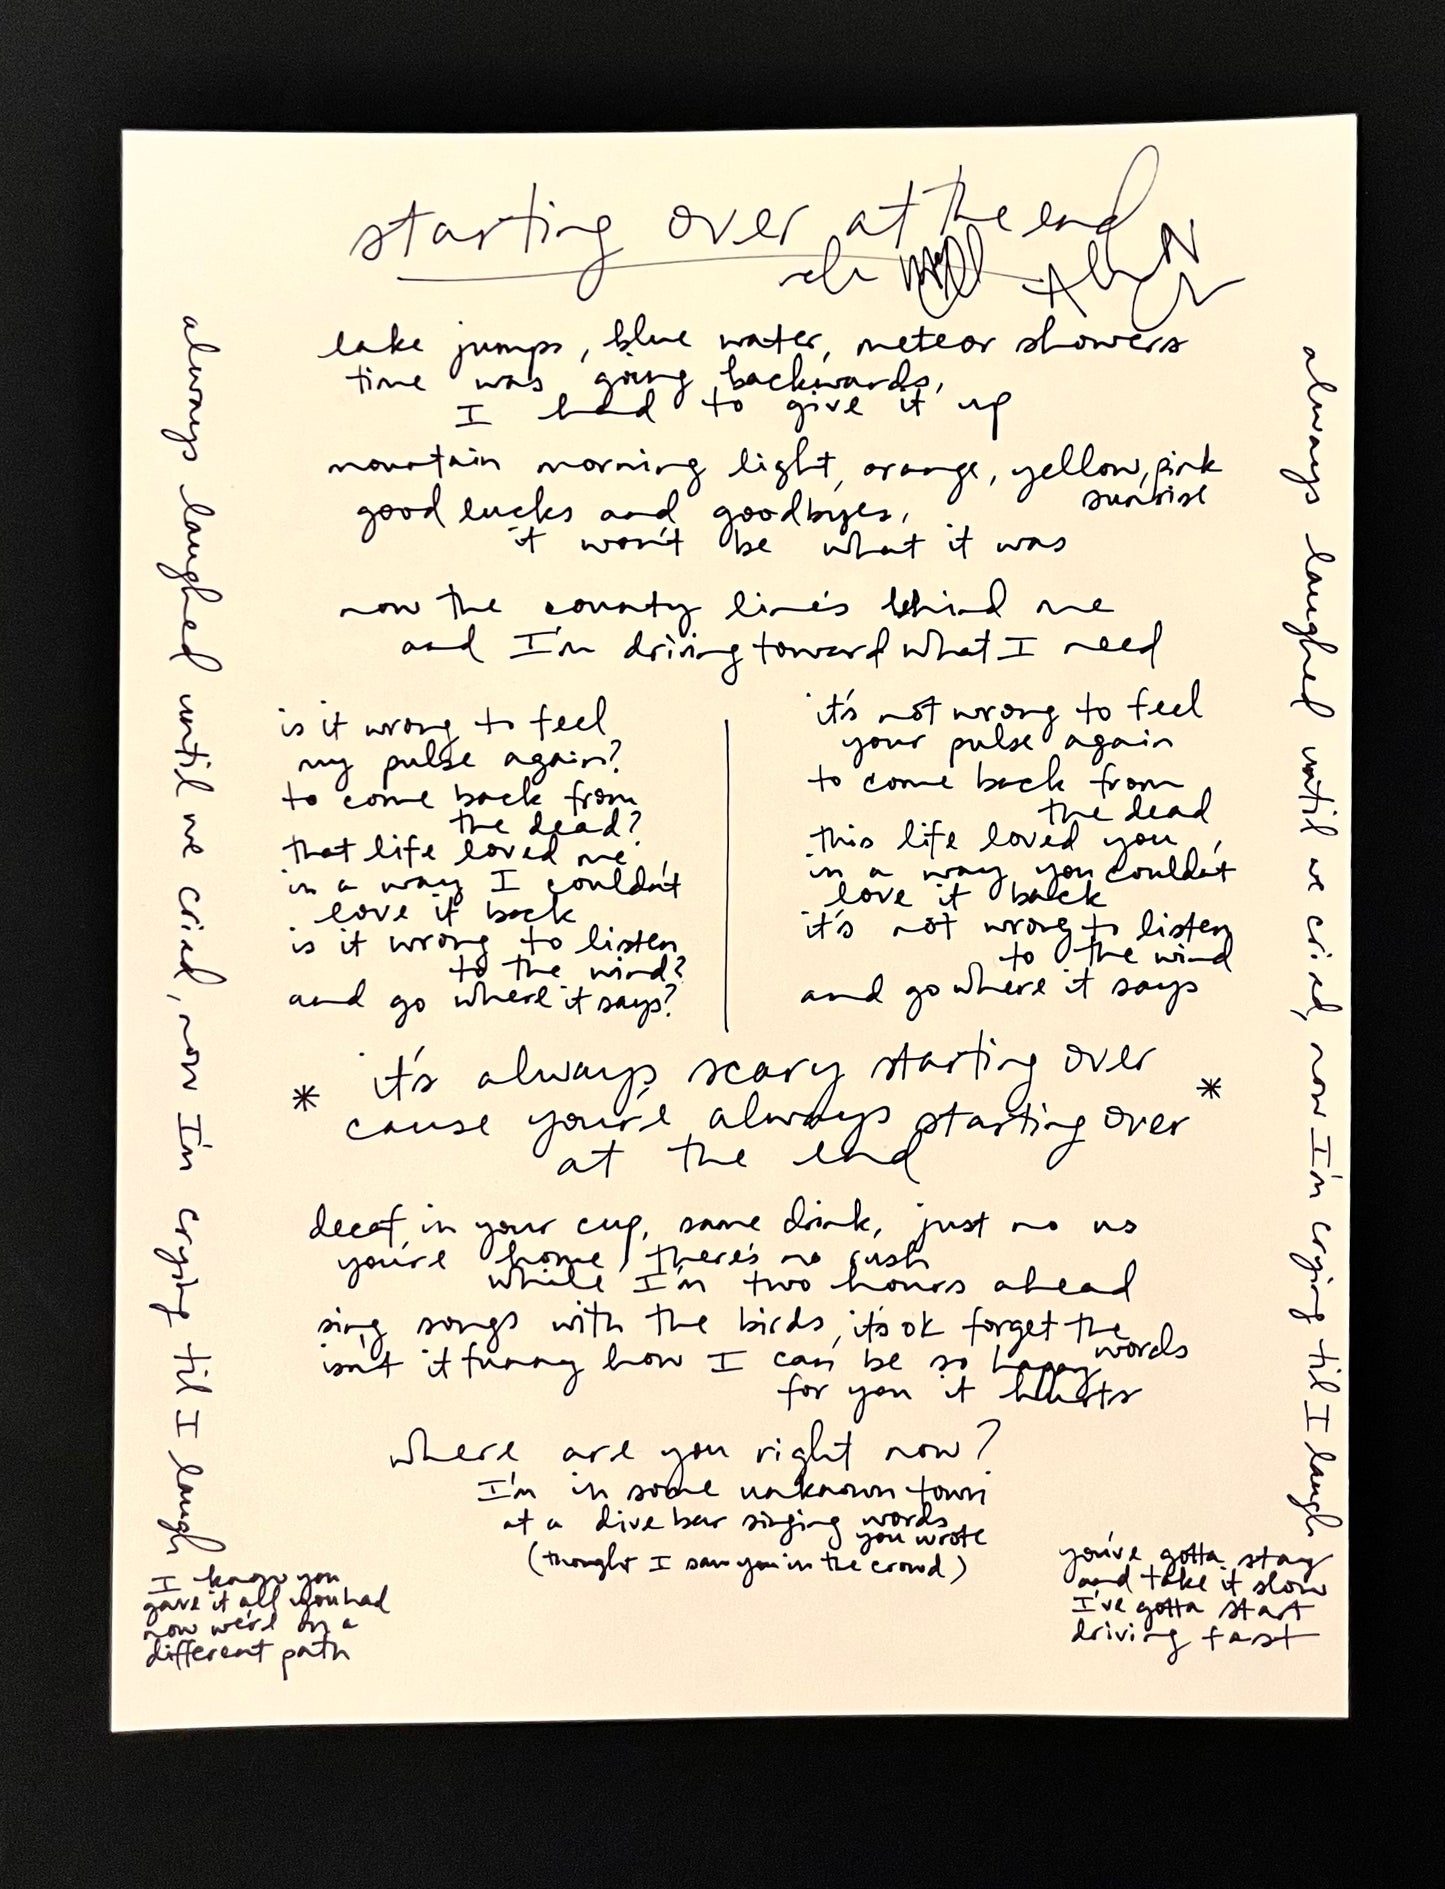 starting over at the end
lake jumps, blue water, meteor showers
time was going backwards,
I had to give it up
mountain morning light, orange, yellow, pink
sunrise
good lucks and goodbyes,
it won't be what it was
now the county line's behind me
and I'm driving toward what I need
is it wrong to feel
my pulse again?
to come back from
the dead?
that life loved me,
in a way I couldn't
love it back
is it wrong to listen
to the wind?
and go where it says?
it's not wrong to feel
your pulse again
to come back from
the dead
this life loved you,
in a way you couldn't
love it back
it's not wrong to listen
to the wind
and go where it says
* it's always scary starting over *
cause you're always starting over
at the end
decaf in your cup, same drink, just no us
you're home, there's no rush
while I'm two hours ahead
sing songs with the birds, it's ok forget the
words
isn't it funny how I can be so happy
for you it hurts
where are you right now?
I'm in some unknown town
at a dive bar singing words
you wrote
(thought I saw you in the crowd)
always laughed until we cried, now I'm crying til I laugh
I know you
gave it all you had
now we're on a
different path
always laughed until we cried, now I'm crying til I laugh
you've gotta stay
and take it slow
I've gotta start
driving fast